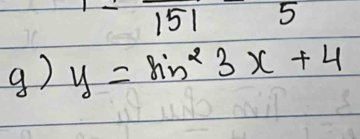 151 5
g) y = sin² 3x + 4